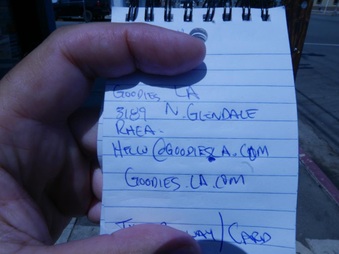 GOODIES LA
3189 N. GLENDALE
RHEA.
HELLO@GOODIESLA.COM
GOODIES.LA.COM
/CARD